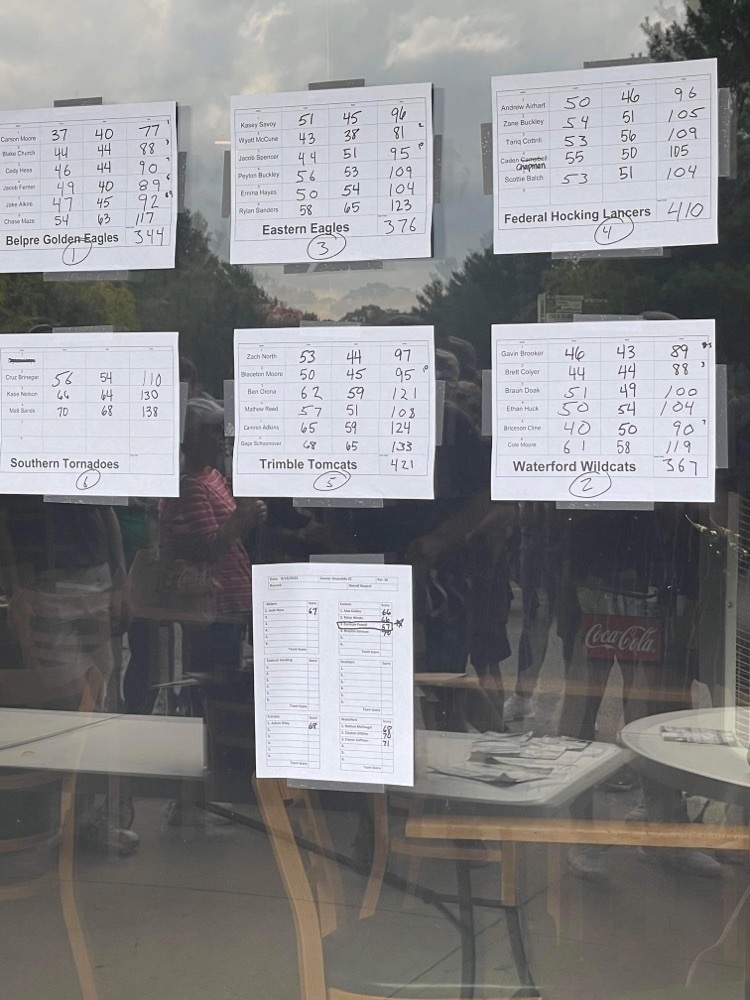 Carson Moore 37 40 77
Blake Church 44 44 88
Cody Hess 46 44 90
Jacob Ferrier 49 40 89
Jake Alkire 47 45 92
Chase Maze 54 63 117
Belpre Golden Eagles 344
1
Kasey Savoy 51 45 96
Wyatt McCune 43 38 81
Jacob Spencer 44 51 95
Peyton Buckley 56 53 109
Emma Hayes 50 54 104
Rylan Sanders 58 65 123
Eastern Eagles 376
3
Andrew Airhart 50 46 96
Zane Buckley 54 51 105
Tariq Cottrill 53 56 109
Caden Campbell 55 50 105
Chapman
Scottie Balch 53 51 104
Federal Hocking Lancers 410
4
Cruz Brinegar 56 54 110
Kase Nelson 66 64 130
Matt Sands 70 68 138
Southern Tornadoes
6
Zach North 53 44 97
Blaceton Moore 50 45 95
Ben Orsina 62 59 121
Mathew Reed 57 51 108
Camren Adkins 65 59 124
Gage Schoonover 68 65 133
Trimble Tomcats 421
5
Gavin Brooker 46 43 89
Brett Colyer 44 44 88
Braun Doak 51 49 100
Ethan Huck 50 54 104
Briceson Cline 40 50 90
Cole Moore 61 58 119
Waterford Wildcats 367
2
67
66
66
67
70
Team Score
Team Score
Federal Hocking
Southern
Team Score
Team Score
68
68
70
71
Team Score
Team Score
Coca-Cola